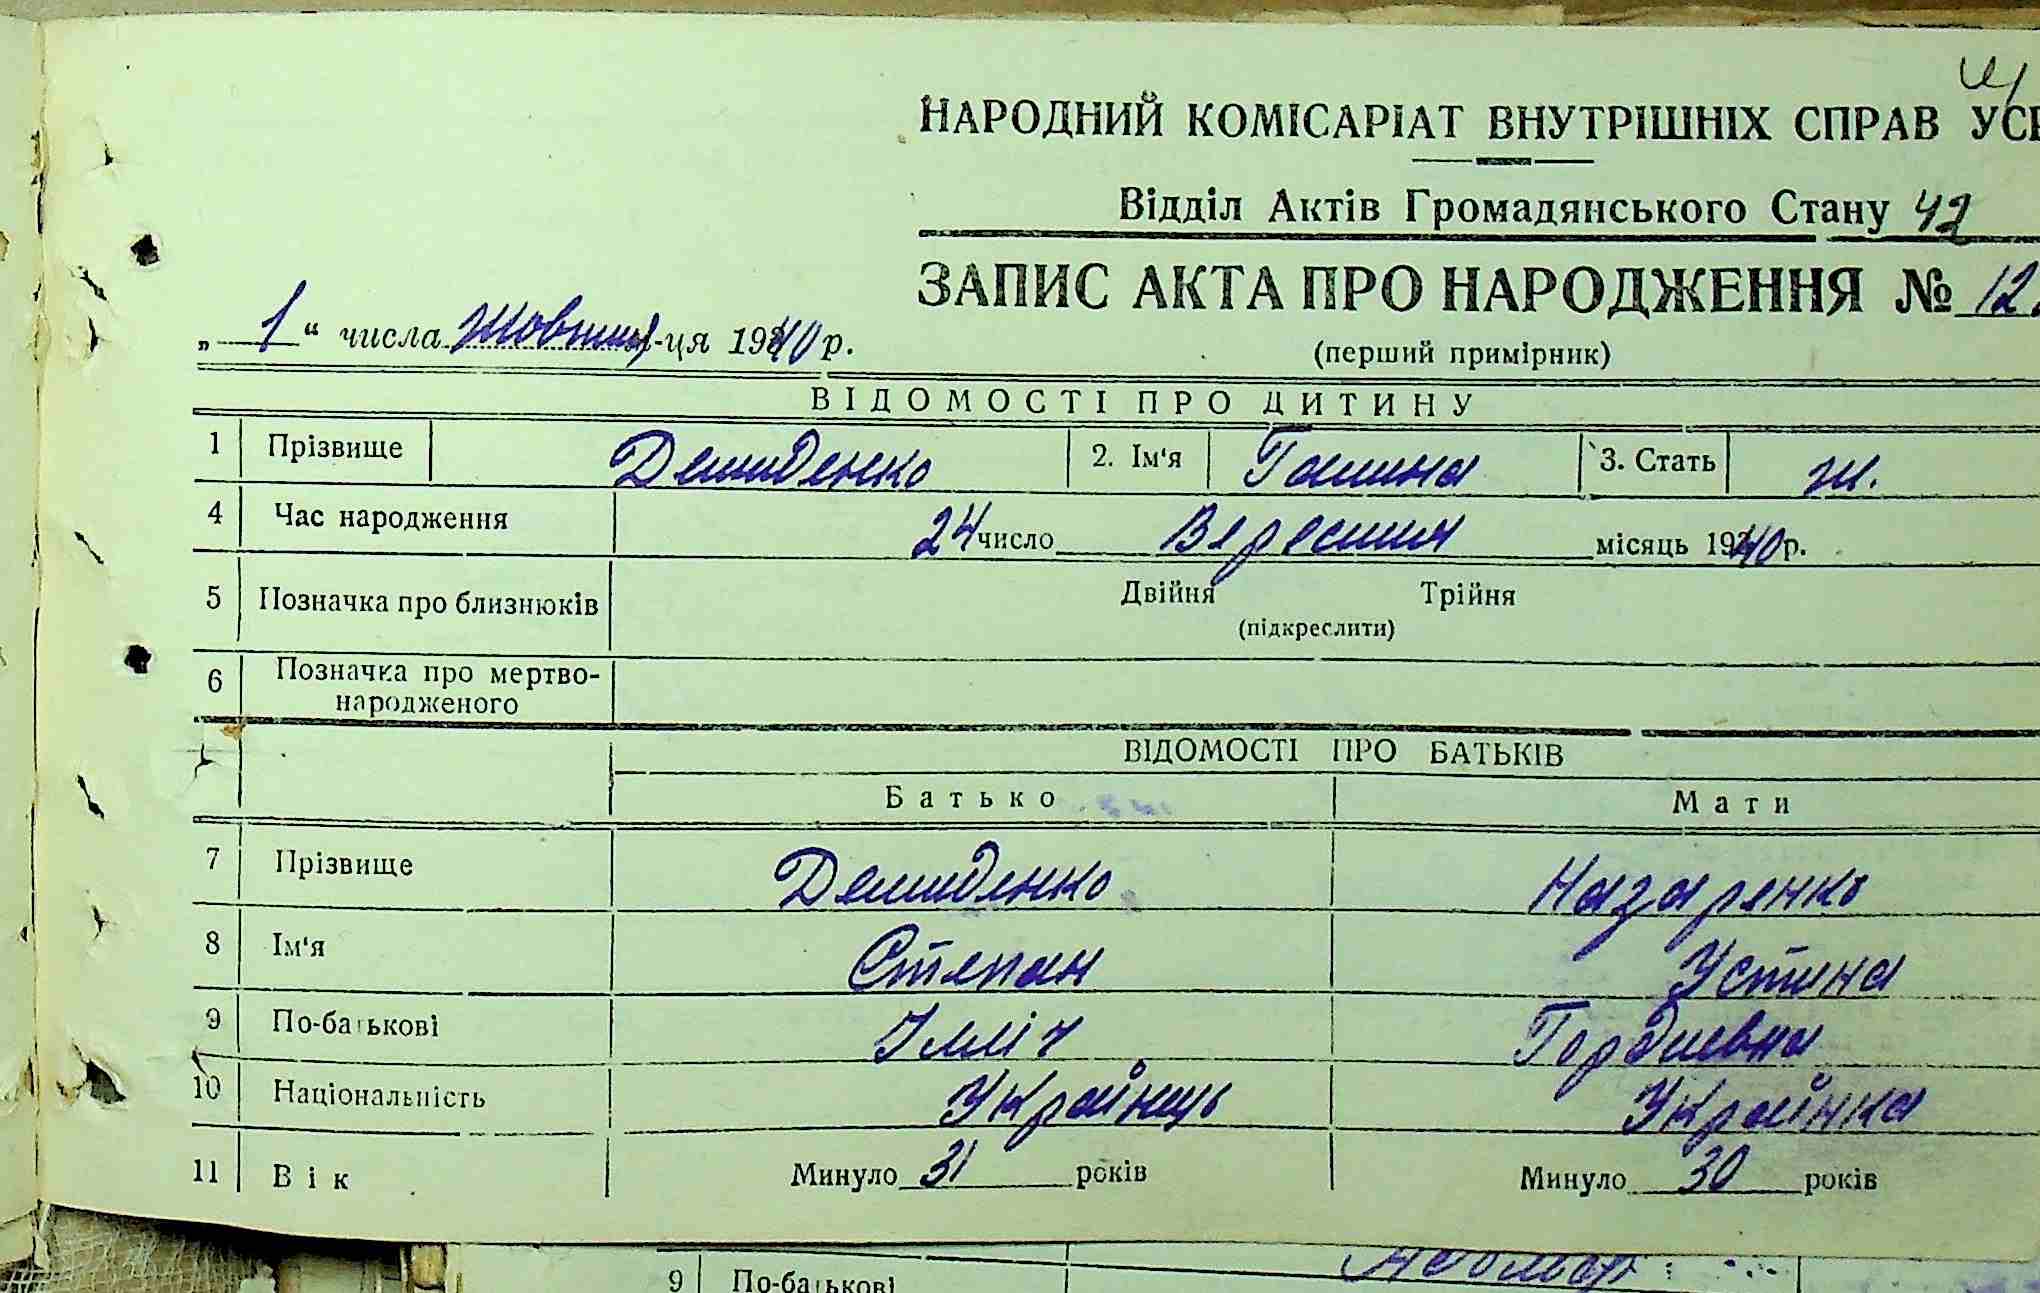 НАРОДНИЙ КОМІСАРІАТ ВНУТРІШНІХ СПРАВ УСР
Відділ Актів Громадянського Стану 42
ЗАПИС АКТА ПРО НАРОДЖЕННЯ № 12
„ 1 “ числа Жовтня м-ця 1940 р.
(перший примірник)
ВІДОМОСТІ ПРО ДИТИНУ
1 Прізвище Демиденко 2. Ім'я Галина 3. Стать ж.
4 Час народження 24 число Вересния місяць 1940 р.
5 Позначка про близнюків Двійня Трійня
(підкреслити)
6 Позначка про мертво-
народженого
ВІДОМОСТІ ПРО БАТЬКІВ
Батько Мати
7 Прізвище Демиденко Назаренко
8 Ім'я Степан Устина
9 По-батькові Ілліч Гордиевна
10 Національність Українць Українка
11 Вік Минуло 31 років Минуло 30 років
9 По-батькові